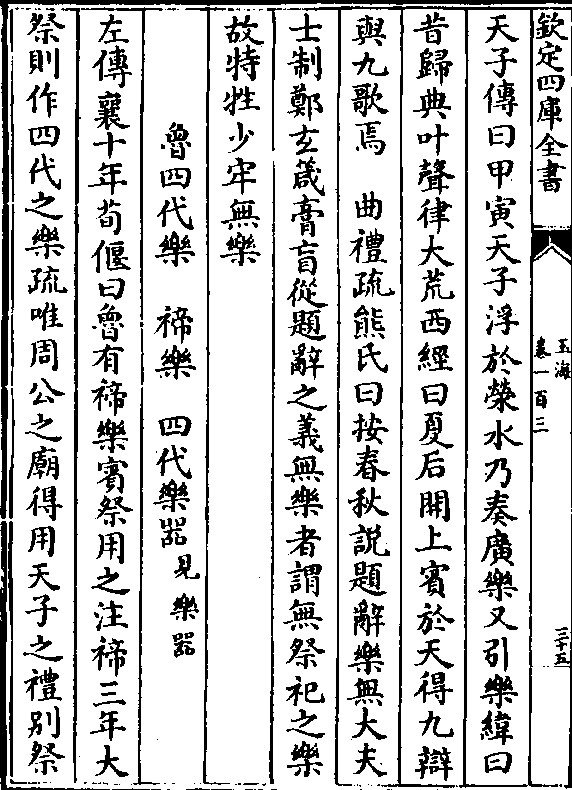 欽定四庫全書
玉海
卷一百三
三十五
天子傳曰甲寅天子浮於滎水乃奏廣樂又引樂緯曰
昔歸典叶聲律大荒西經曰夏后開上賓於天得九辯
與九歌焉　曲禮疏熊氏曰按春秋說題辭樂無大夫
士制鄭玄箴膏肓從題辭之義無樂者謂無祭祀之樂
故特牲少牢無樂
魯四代樂　禘樂　四代樂器見樂器
左傳襄十年荀偃曰魯有禘樂賓祭用之注禘三年大
祭則作四代之樂疏唯周公之廟得用天子之禮別祭